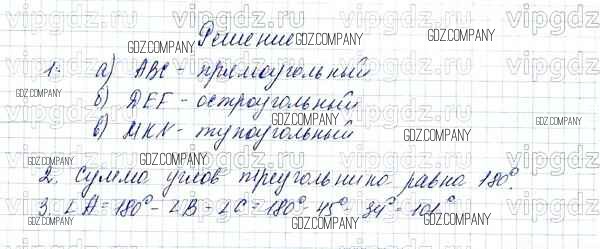 Решение
1. а) АВС - прямоугольный
б) DEF - остроугольный
в) MKN - тупоугольный
2. Сумма углов треугольника равна 180°.
3. ∠A = 180° - ∠B - ∠C = 180° - 45° - 34° = 101°